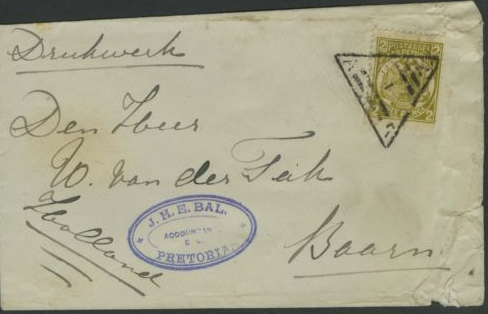 Drukwerk
Den Heer
W. van der Feik
Baarn
Holland
J. H. E. BAL.
ACCOUNTANT
PRETORIA.
POSTZEGEL
2
2
2